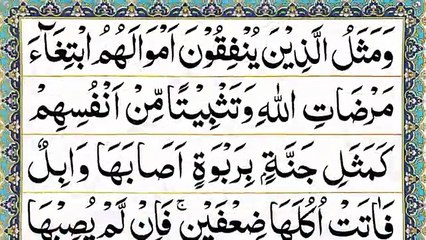 وَمَثَلُ الَّذِيْنَ يُنْفِقُوْنَ اَمْوَالَهُمُ ابْتِغَآءَ
مَرْضَاتِ اللّٰهِ وَتَثْبِيْتًا مِّنْ اَنْفُسِهِمْ
كَمَثَلِ جَنَّةٍۭ بِرَبْوَةٍ اَصَابَهَا وَابِلٌ
فَاٰتَتْ اُكُلَهَا ضِعْفَيْنِۚ فَاِنْ لَّمْ يُصِبْهَا